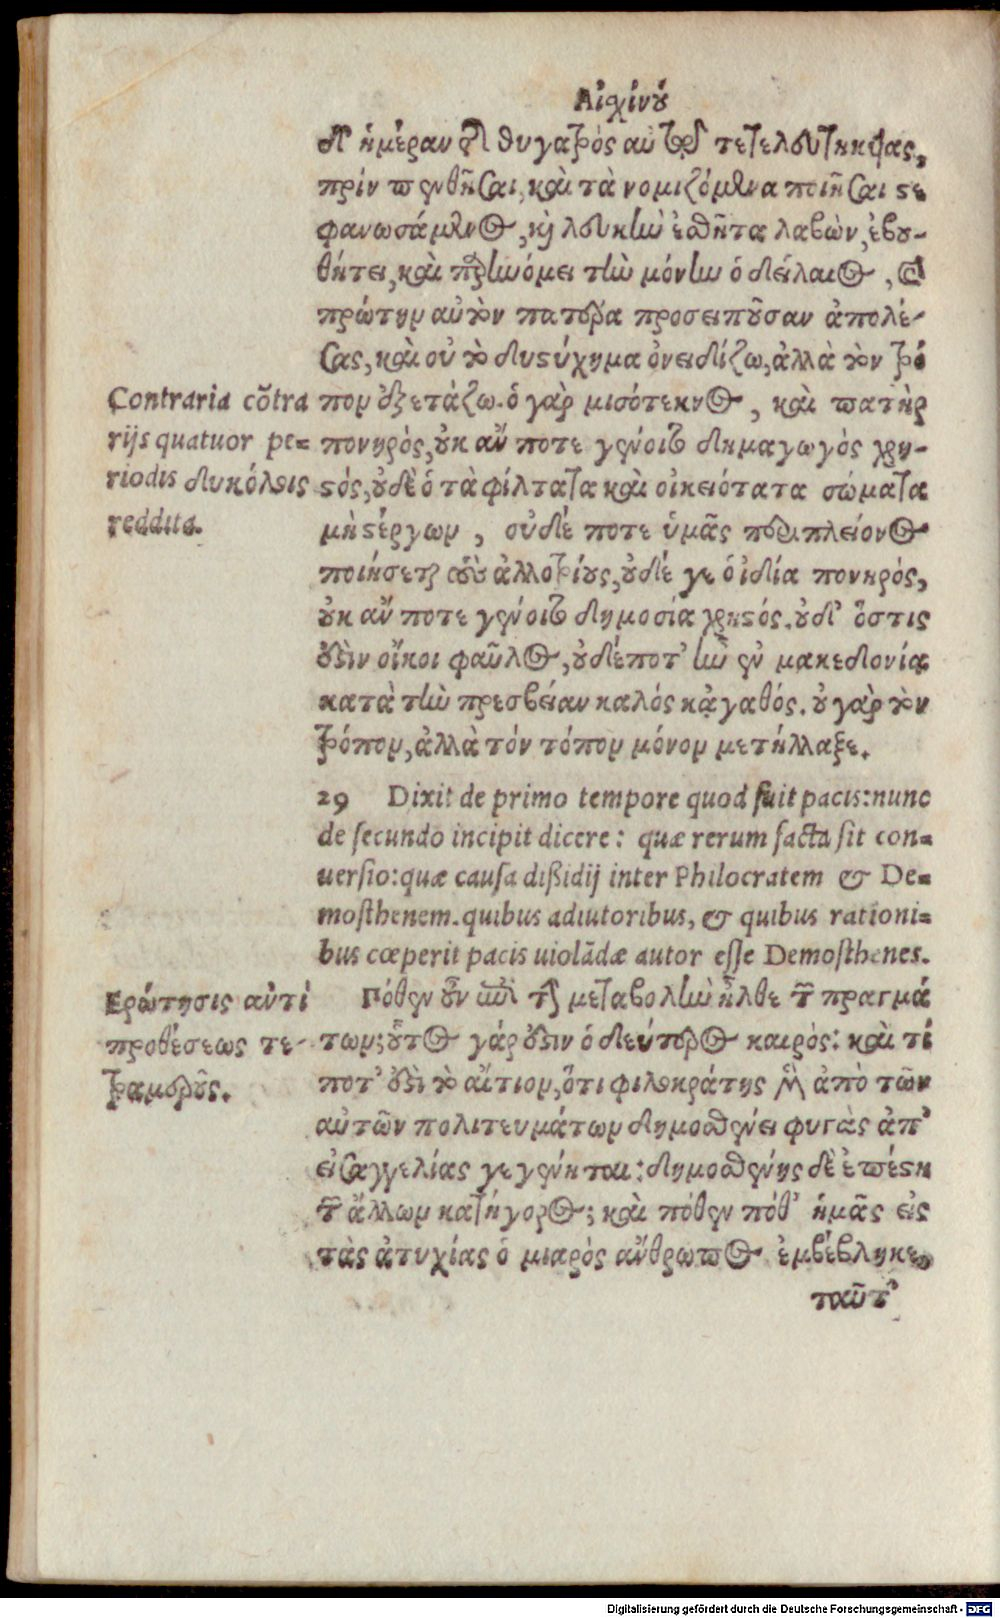 Αἰσχίνου
δ' ἡμέραν τῆς θυγατρὸς αὐτῷ τετελευτηκυίας,
πρὶν πενθῆσαι, καὶ τὰ νομιζόμενα ποιῆσαι στε
φανωσάμενος, καὶ λευκὴν ἐσθῆτα λαβὼν, ἐβου-
θύτει, καὶ παρηνόμει τὴν μόνην ὁ δείλαιος, καὶ
πρώτην αὐτὸν πατέρα προσειποῦσαν ἀπολέ-
σας, καὶ οὐ τὸ δυστύχημα ὀνειδίζω, ἀλλὰ τὸν τρό
πον ἐξετάζω. ὁ γὰρ μισότεκνος, καὶ πατὴρ
πονηρὸς, οὐκ ἄν ποτε γένοιτο δημαγωγὸς χρη-
στός, οὐδὲ ὁ τὰ φίλτατα καὶ οἰκειότατα σώματα
μὴ στέργων, οὐδέ ποτε ὑμᾶς περὶ πλείονος
ποιήσεται τοὺς ἀλλοτρίους, οὐδέ γε ὁ ἰδίᾳ πονηρός,
οὐκ ἄν ποτε γένοιτο δημοσίᾳ χρηστός. οὐδ' ὅστις
ἐστὶν οἴκοι φαῦλος, οὐδέποτ' ἦν ἐν μακεδονίᾳ
κατὰ τὴν πρεσβείαν καλός κἀγαθός. οὐ γὰρ τὸν
τρόπον, ἀλλὰ τόν τόπον μόνον μετήλλαξε.
Contraria cõtra
rijs quatuor pe=
riodis δυκόλως
reddita.
29 Dixit de primo tempore quod fuit pacis: nunc
de secundo incipit dicere: quæ rerum facta sit con=
uersio: quæ causa dißidij inter Philocratem & De=
mosthenem. quibus adiutoribus, & quibus rationi=
bus cœperit pacis uiolãdæ autor esse Demosthenes.
Ἐρώτησις ἀντὶ
προθέσεως τε-
τραμεροῦς.
Πόθεν οὖν ἐπὶ τὴν μεταβολὴν ἦλθε τῶν πραγμά
των; οὗτος γάρ ἐστιν ὁ δεύτερος καιρὸς: καὶ τί
ποτ' ἐστὶ τὸ αἴτιον, ὅτι φιλοκράτης μὲν ἀπὸ τῶν
αὐτῶν πολιτευμάτων δημοσθένει φυγὰς ἀπ'
εἰσαγγελίας γεγένηται: δημοσθένης δὲ ἐπέστη
τῶν ἄλλων κατήγορος; καὶ πόθεν πόθ' ἡμᾶς εἰς
τὰς ἀτυχίας ὁ μιαρὸς ἄνθρωπος ἐμβέβληκε,
ταῦτ'
Digitalisierung gefördert durch die Deutsche Forschungsgemeinschaft - DFG